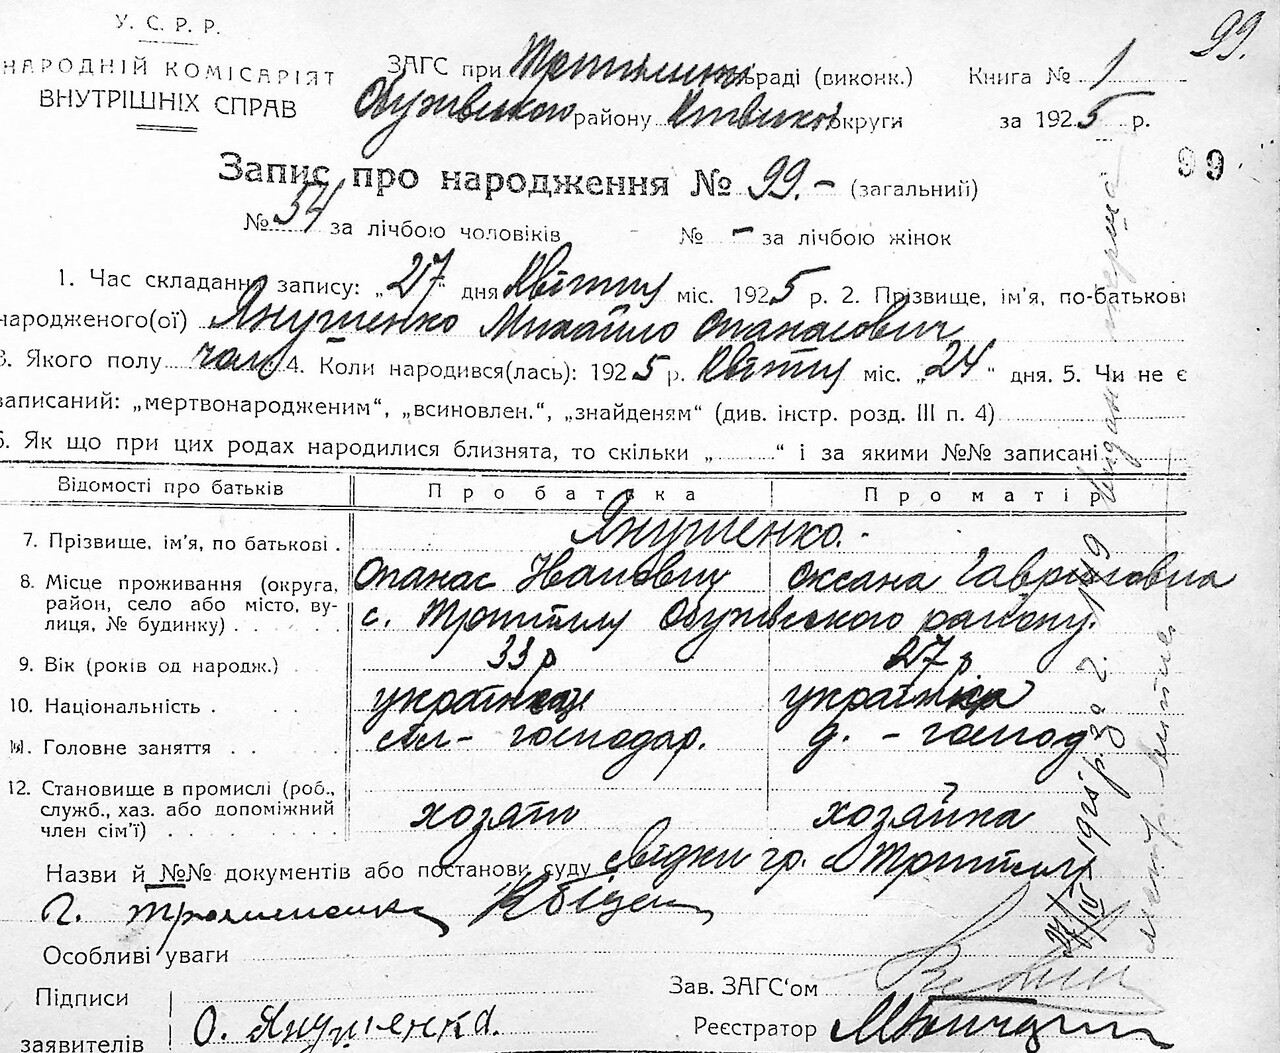 99.
У. С. Р. Р.
НАРОДНІЙ КОМІСАРІЯТ
ВНУТРІШНІХ СПРАВ
ЗАГС при раді (виконк.) Книга № 1
району округи за 1925 р.
99
Запис про народження № 99.- (загальний)
№ 54 за лічбою чоловіків № - за лічбою жінок
1. Час складання запису: „27" дня Квітня міс. 1925 р. 2. Прізвище, ім'я, по-батькові
народженого(ої) Янушенко Михайло Опанасович
3. Якого полу чол 4. Коли народився(лась): 1925 р. Квітня міс. „24" дня. 5. Чи не є
записаний: „мертвонародженим“, „всиновлен.“, „знайденям“ (див. інстр. розд. III п. 4)
6. Як що при цих родах народилися близнята, то скільки „ “ і за якими №№ записані
Відомості про батьків Про батька Про матір
7. Прізвище, ім'я, по батькові . Янушенко.
Опанас Іванович Оксана Гаврилівна
8. Місце проживання (округа,
район, село або місто, ву-
лиця, № будинку) . с. району.
9. Вік (років од народж.) 33 р 27 р
10. Національність . українець українка
11. Головне заняття . . сіл- господар. д. - господ
12. Становище в промислі (роб.,
служб., хаз. або допоміжний
член сім'ї) . хозяїн хозяйка
Назви й №№ документів або постанови суду свідки гр. с
Особливі уваги
Підписи
заявителів О. Янушенко.
Зав. ЗАГС‘ом
Реєстратор
27/IV 1925 р. за №